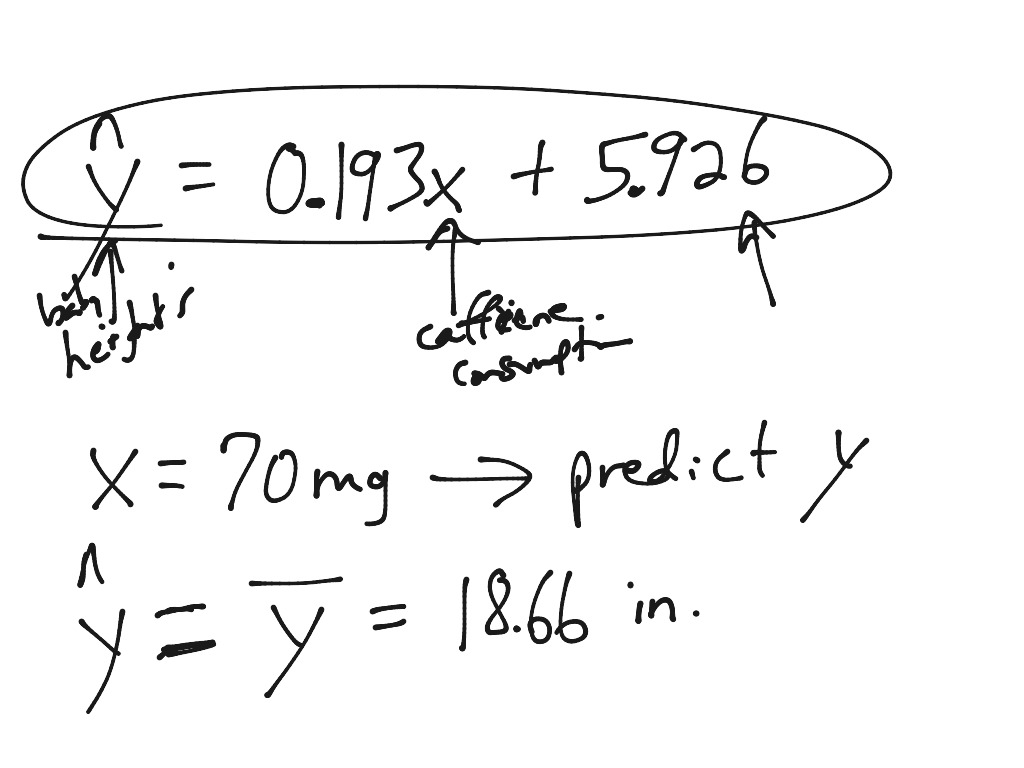 ŷ = 0.193x + 5.926
height
caffeine
consumpt
x = 70mg → predict y
ŷ = y̅ = 18.66 in.